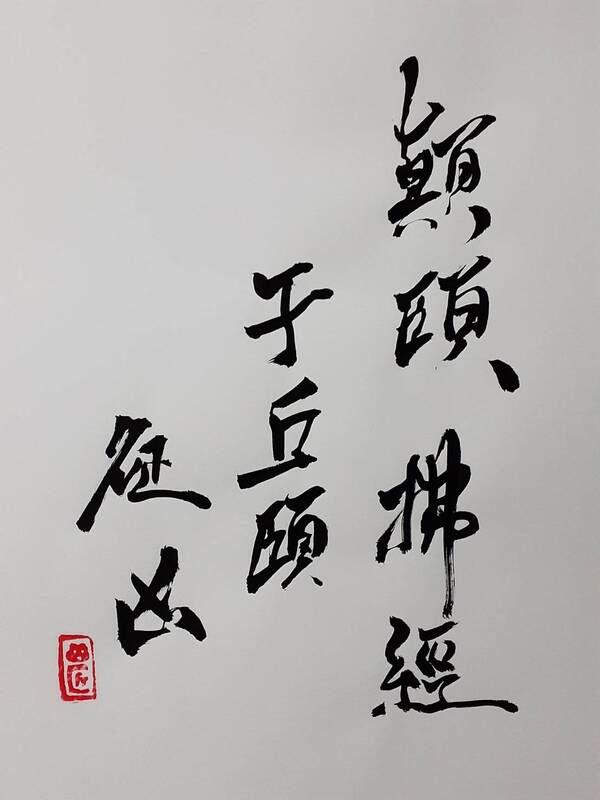 顛頤拂經
于丘頤
征凶